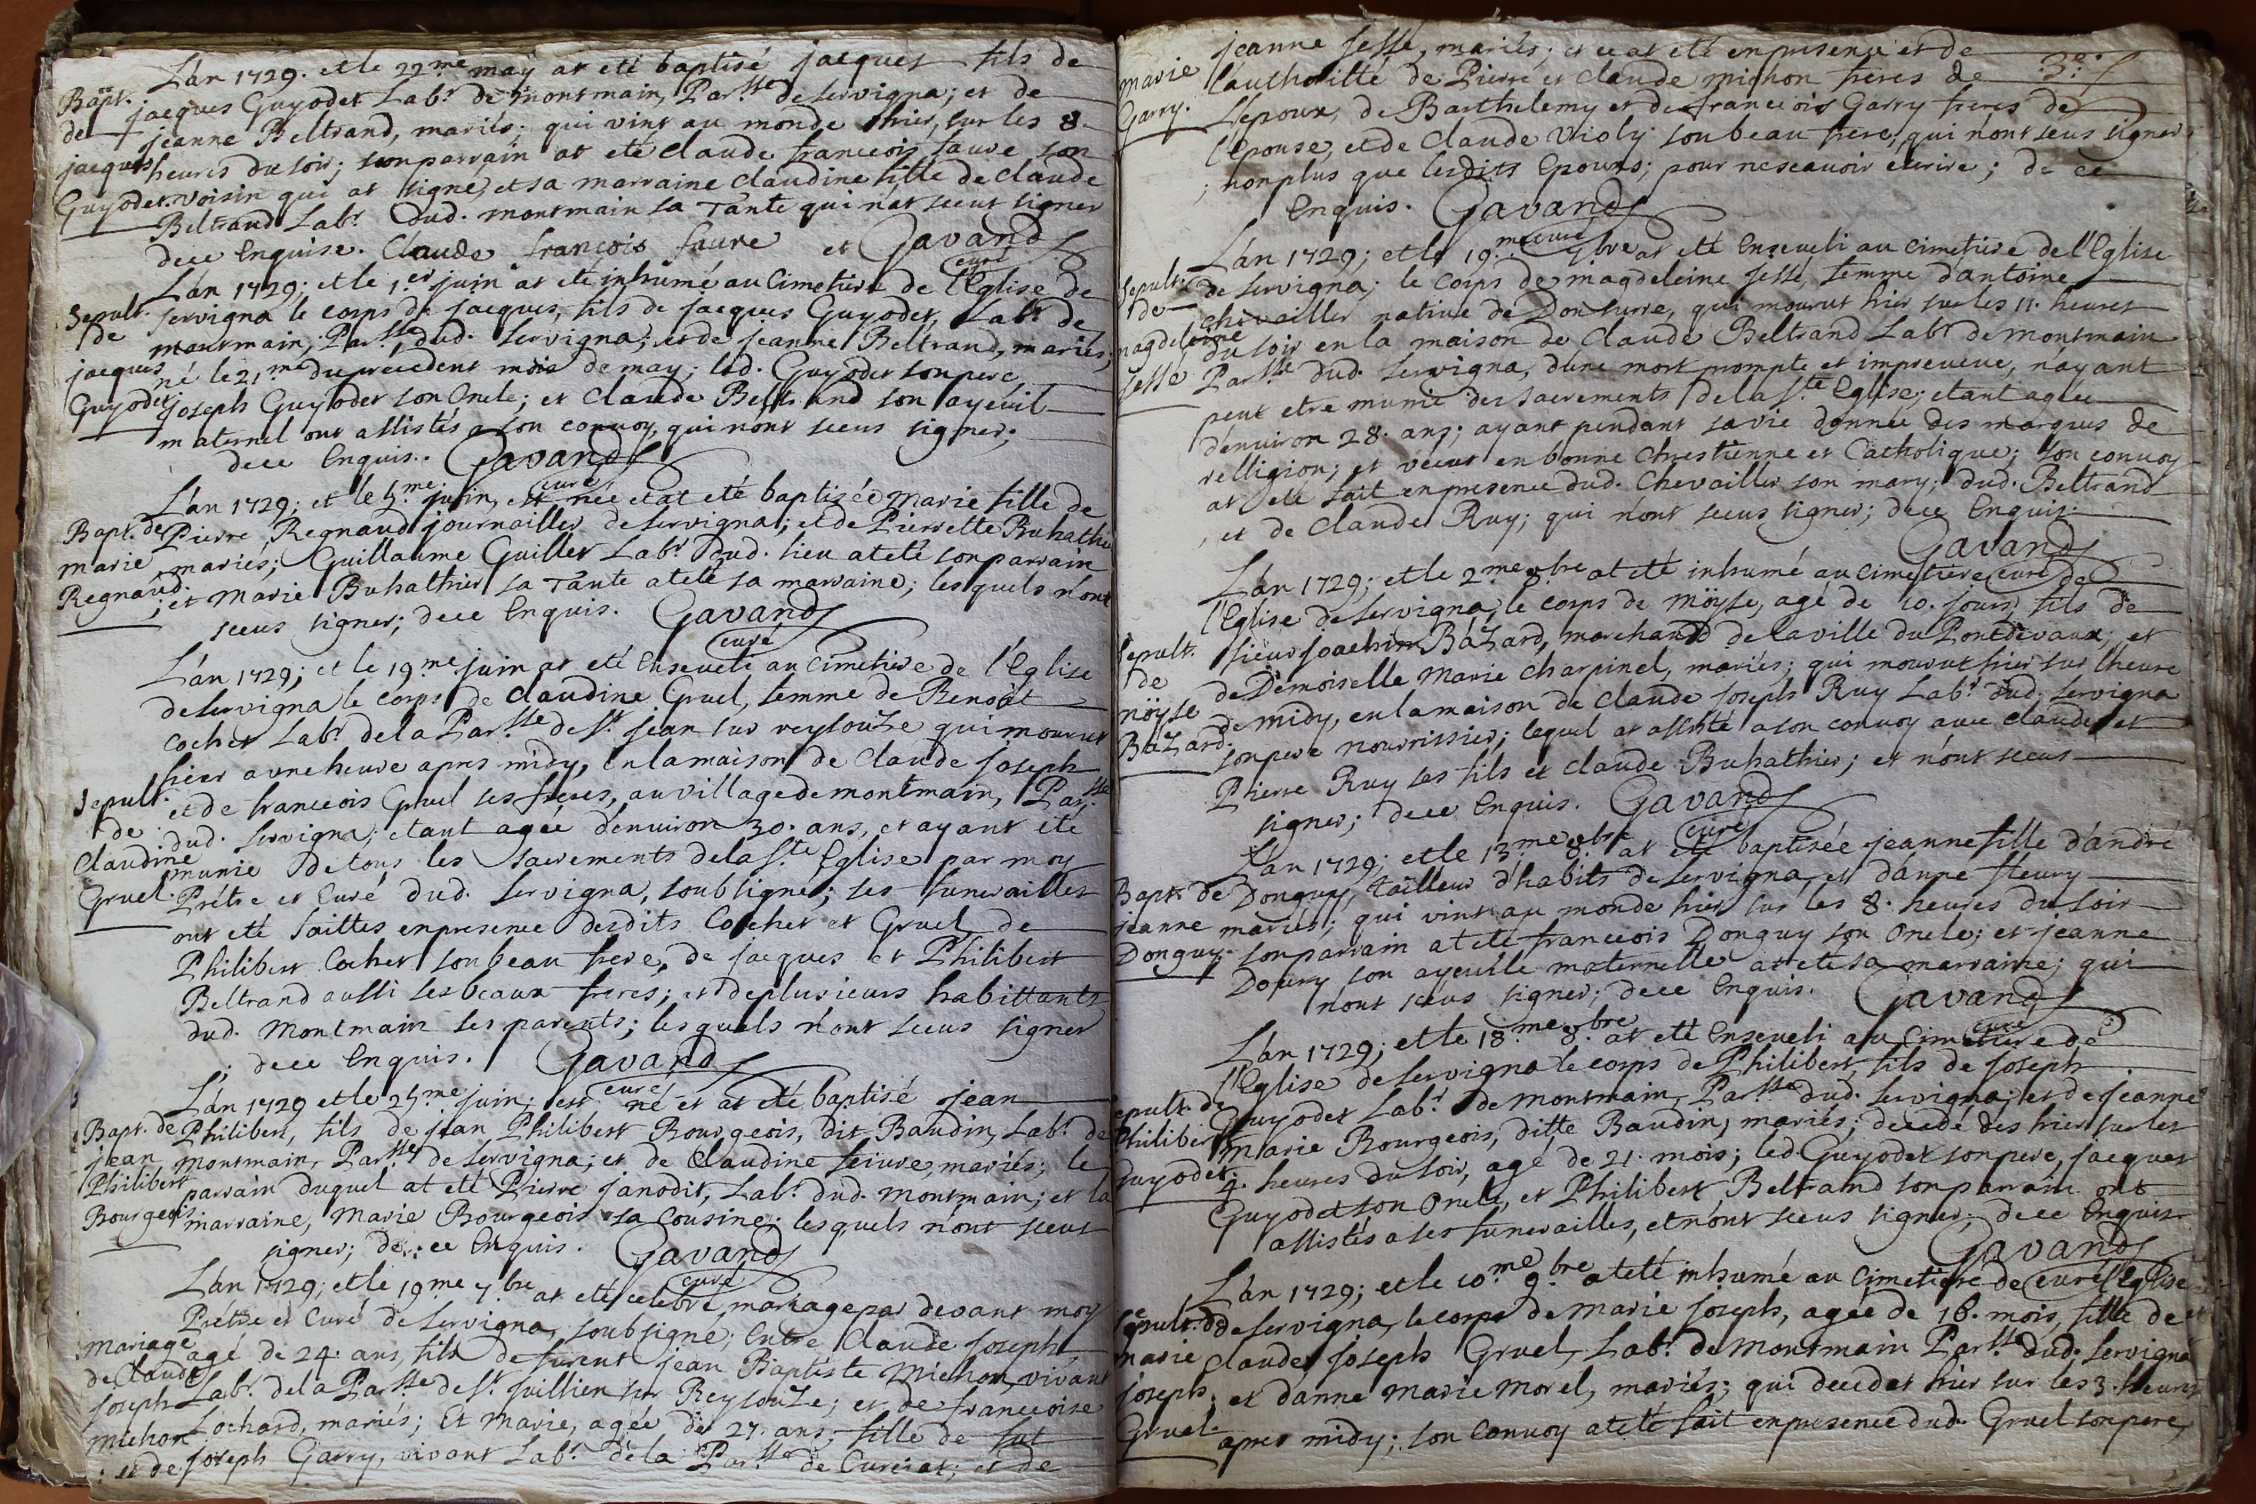 L'an 1729. et le 22.me may at eté baptisé jacques fils de
Bapt. jacques Guyodet Lab.r de montmain, Par.sse de servigna; et de
de jeanne Beltrand, mariés; qui vint au monde hier, sur les 8.
jacques heures du soir; son parrain at eté claude francois faure son
Guyodet. voisin qui at signé, et sa marraine claudine fille de claude
Beltrand Lab.r dud. montmain sa Tante qui n'at sceut signer
de ce Enquise. Claude francois faure et Gavand
curé
L'an 1729; et le 1.er juin at eté inhumé au Cimetiere de l'Eglise de
Sepult. servigna le corps de jacques, fils de jacques Guyodet, Lab.r de
de montmain, Par.sse dud. servigna; et de jeanne Beltrand, mariés;
jacques né le 21.me du precedent mois de may; led. Guyodet son pere,
Guyodet joseph Guyodet son Oncle; et claude Beltrand son ayeuil
maternel ont assistés a son convoy, qui n'ont sceus signer;
de ce Enquis. Gavand
curé
L'an 1729; et le 5.me juin, est née et at eté baptisée marie fille de
Bapt. de Pierre Regnaud journailler de servigna; et de Pierrette Buhathier
marie mariés; Guillaume Guiller Lab.r dud. lieu at eté son parrain
Regnaud. ; et Marie Buhathier sa Tante at eté sa marraine; lesquels n'ont
sceus signer; de ce Enquis. Gavand
curé
L'an 1729; et le 19.me juin at eté Enseveli au cimetiere de l'Eglise
de servigna le corps de claudine Gruel, femme de Benoit
Cochet Lab.r de la Par.sse de S.t jean sur reysouze qui mourut
hier a une heure apres midy, en la maison de Claude joseph
Sepult. et de francois Gruel ses freres, au village de montmain, Par.sse
de dud. servigna; etant agée d'environ 30. ans, et ayant eté
Claudine munie de tous les sacrements de la S.te Eglise par moy
Gruel. Prétre et Curé dud. servigna, soubsigné; ses funerailles
ont eté faittes en presence desdits Cochet et Gruel, de
Philibert Cochet son beau frere, de jacques et Philibert
Beltrand aussi ses beaux freres; et de plusieurs habittants
dud. montmain ses parents; lesquels n'ont sceus signer
; de ce Enquis. Gavand
curé
L'an 1729 et le 25.me juin; est né et at eté baptisé jean
Bapt. de Philibert, fils de jean Philibert Bourgeois, dit Baudin, Lab.r de
jean montmain, Par.sse de servigna; et de Claudine mariés; le
Philibert parrain duquel at eté Pierre janodit, Lab.r dud. montmain; et la
Bourgeois marraine, Marie Bourgeois sa Cousine; lesquels n'ont sceus
signer; de ce Enquis. Gavand
curé
L'an 1729; et le 19.me 7.bre at eté celebré mariage par devant moy
Prétre et Curé de servigna, soubsigné; Entre Claude joseph,
mariage agé de 24. ans, fils de furent jean Baptiste Michon, vivant
de Claude Lab.r de la Par.sse de S.t juillien sur Reysouze; et de francoise
joseph Lochard, mariés; Et Marie, agée de 27. ans; fille de fut
Michon joseph Garry, vivant Lab.r de la Par.sse de Curciat; et de
; et de
jeanne jesse, mariés; et ce at eté en presence et de
marie l'authoritté de Pierre et claude michon freres de 3.e
Garry. L'epoux, de Barthelemy et de francois Garry freres de
l'Epouse, et de Claude Violy son beau frere, qui n'ont sceus signer
; non plus que lesdits Epoux; pour ne scavoir ecrire; de ce
Enquis. Gavand
curé
L'an 1729; et le 19.me 7.bre at eté Enseveli au cimetiere de l'Eglise
Sepult. de servigna; le corps de magdeleine jesse, femme d'antoine
de chevailler native de Donsurre, qui mourut hier sur les 11. heures
magdeleine du soir en la maison de Claude Beltrand Lab.r de montmain
jesse Par.sse dud. servigna, d'une mort prompte et impreveue, n'ayant
peut etre munie des sacrements de la S.te Eglise; etant agée
d'environ 28. ans; ayant pendant sa vie donnée des marques de
relligion; et vecut en bonne Chrestienne et Catholique; son convoy
at eté fait en presence dud. Chevailler son mary; dud. Beltrand
, et de Claude Ruy; qui n'ont sceus signer; de ce Enquis.
Gavand
curé
L'an 1729; et le 2.me 8.bre at eté inhumé au cimetiere de
l'Eglise de servigna, le corps de möyse, agé de 10. jours, fils de
Sepult. sieur joachim Bázard, marchand de la ville du Pontdevaux; et
de de Demoiselle Marie charpinel, mariés; qui mourut hier sur l'heure
möyse de midy, en la maison de claude joseph Ruy Lab.r dud. servigna
Bázard. son pere nourrissier; lequel at assisté a son convoy avec claude et
Pierre Ruy ses fils et claude Buhathier; et n'ont sceus
signer; de ce Enquis. Gavand
curé
L'an 1729; et le 13.me 8.bre at eté baptisée jeanne fille d'andré
Bapt. de Donguy, tailleur d'habits de servigna, et d'anne fleury
jeanne mariés; qui vint au monde hier sur les 8. heures du soir
Donguy. son parrain at eté francois Donguy son Oncle; et jeanne
Doury son ayeulle maternelle at eté sa marraine; qui
n'ont sceus signer; de ce Enquis. Gavand
curé
L'an 1729; et le 18.me 8.bre at eté Enseveli au Cimetiere de
l'Eglise de servigna le corps de Philibert, fils de joseph
Sepult. de Guyodet Lab.r de montmain, Par.sse dud. servigna; et de jeanne
Philibert marie Bourgeois, ditte Baudin, mariés; decedé des hier sur les
Guyodet. 4. heures du soir, agé de 21. mois; led. Guyodet son pere, jacques
Guyodet son Oncle, et Philibert Beltrand son parrain ont
assistés a ses funerailles, et n'ont sceus signer; de ce Enquis
Gavand
curé
L'an 1729; et le 10.me 9.bre at eté inhumé au Cimetiere de l'Eglise
Sepult. de de servigna, le corps de Marie joseph, agée de 18. mois, fille de
marie Claude joseph Gruel, Lab.r de montmain Par.sse dud. servigna
joseph ; et d'anne marie Morel, mariés; qui decedat hier sur les 3. heures
Gruel. apres midy; son convoy at eté fait en presence dud. Gruel son pere,